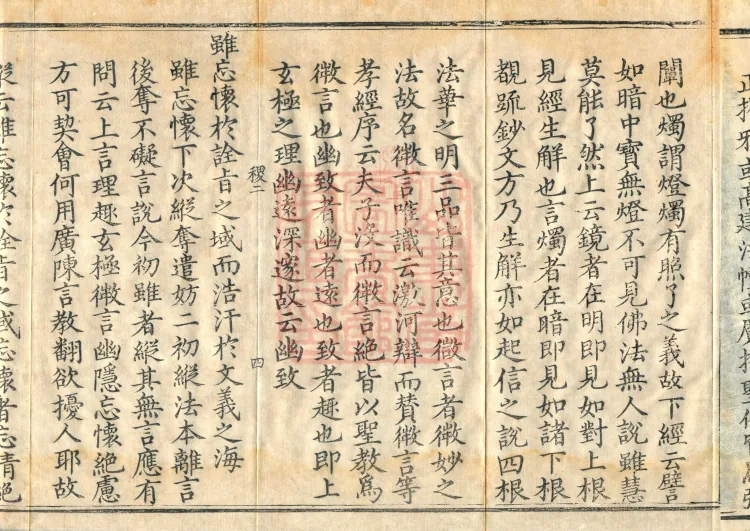 闡也燭謂燈燭有照了之義故下經云譬
如暗中寶無燈不可見佛法無人說雖慧
莫能了然上云鏡者在明即見如對上根
見經生解也言燭者在暗即見如諸下根
覩䟽鈔文方乃生解亦如起信之說四根
法華之明三品皆其意也微言者微妙之
法故名微言唯識云激河辯而贊微言等
孝經序云夫子沒而微言絕皆以聖教為
微言也幽致者幽者遠也致者趣也即上
玄極之理幽遠深邃故云幽致
稷二 四
雖忘懷於詮旨之域而浩汗於文義之海
雖忘懷下次縱奪遣妨二初縱法本離言
後奪不礙言說今初雖者縱其無言應有
問云上言理趣玄極微言幽隱忘懷絕慮
方可契會何用廣陳言教翻欲擾人耶故
縱云雖忘懷於詮旨之域忘懷者忘情絕